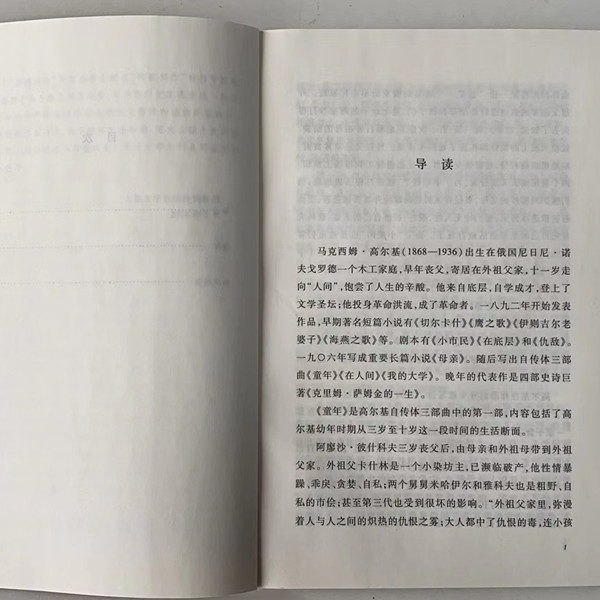 导读
马克西姆·高尔基(1868—1936)出生在俄国尼日尼·诺
夫戈罗德一个木工家庭,早年丧父,寄居在外祖父家,十一岁走
向“人间”,饱尝了人生的辛酸。他来自底层,自学成才,登上了
文学圣坛;他投身革命洪流,成了革命者。一八九二年开始发表
作品,早期著名短篇小说有《切尔卡什》《鹰之歌》《伊则吉尔老
婆子》《海燕之歌》等。剧本有《小市民》《在底层》和《仇敌》。
一九〇六年写成重要长篇小说《母亲》。随后写出自传体三部
曲《童年》《在人间》《我的大学》。晚年的代表作是四部史诗巨
著《克里姆·萨姆金的一生》。
《童年》是高尔基自传体三部曲中的第一部,内容包括了高
尔基幼年时期从三岁至十岁这一段时间的生活断面。
阿廖沙·彼什科夫三岁丧父后,由母亲和外祖母带到外祖
父家。外祖父卡什林是一个小染坊主,已濒临破产,他性情暴
躁、乖戾、贪婪、自私;两个舅舅米哈伊尔和雅科夫也是粗野、自
私的市侩;甚至第三代也受到很坏的影响。“外祖父家里,弥漫
着人与人之间的炽热的仇恨之雾;大人都中了仇恨的毒,连小孩
1